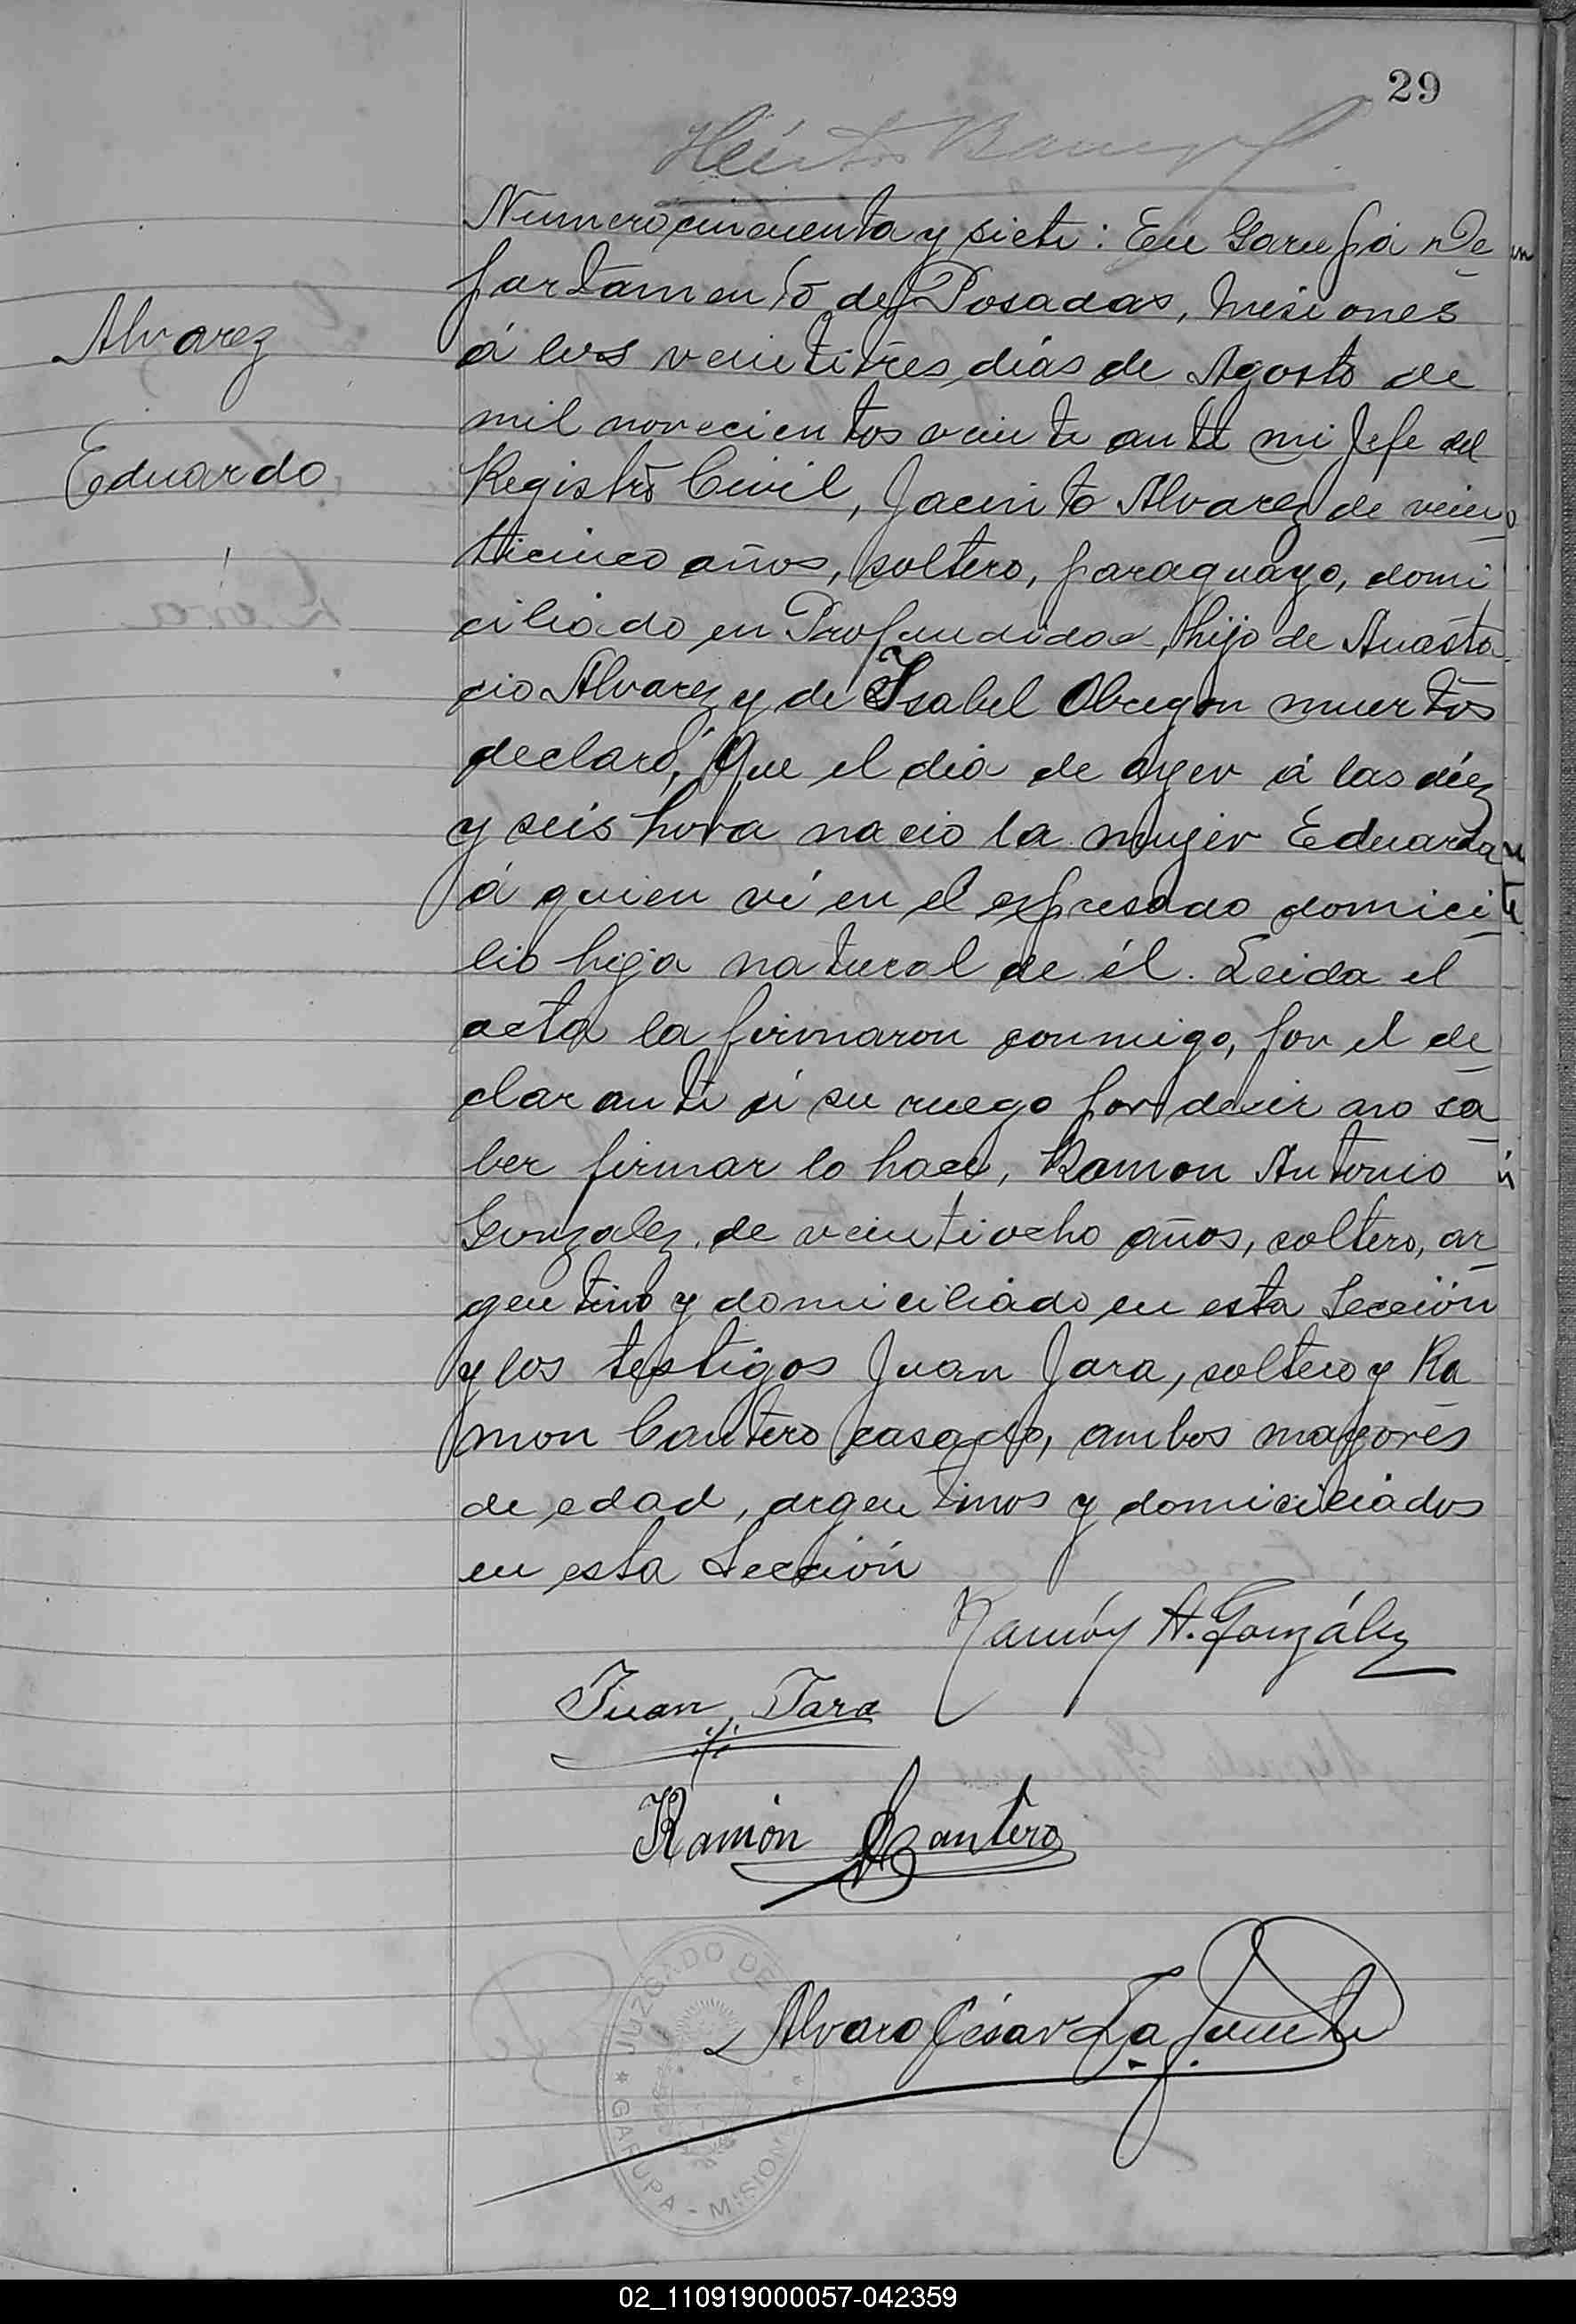 29
Numero cincuenta y siete: En Garupá De
partamento de Posadas, Misiones
á los veintitres dias de Agosto de
mil novecientos veinte ante mi Jefe del
Alvarez
Registro Civil, Jacinto Alvarez de vein
Eduardo
ticinco años, soltero, paraguayo, domi
ciliado en Profundidad, hijo de Anasta
cio Alvarez y de Isabel Obregon muertos
declaró, Que el dia de ayer á las diez
y seis hora nacio la mujer Eduarda
á quien ví en el expresado domici
lio hija natural de él. Leida el
acta la firmaron conmigo, por el de
clarante á su ruego por decir no sa
ber firmar lo hace, Ramon Antonio
Gonzalez, de veintiocho años, soltero, ar
gentino y domiciliado en esta Sección
y los testigos Juan Jara, soltero y Ra
mon Cantero casado, ambos mayores
de edad, argentinos y domiciliados
en esta Sección
Ramón A. González
Juan Jara
Ramón Cantero
Alvaro César La Fuente
JUZGADO DE
GARUPA - MISION
02_110919000057-042359